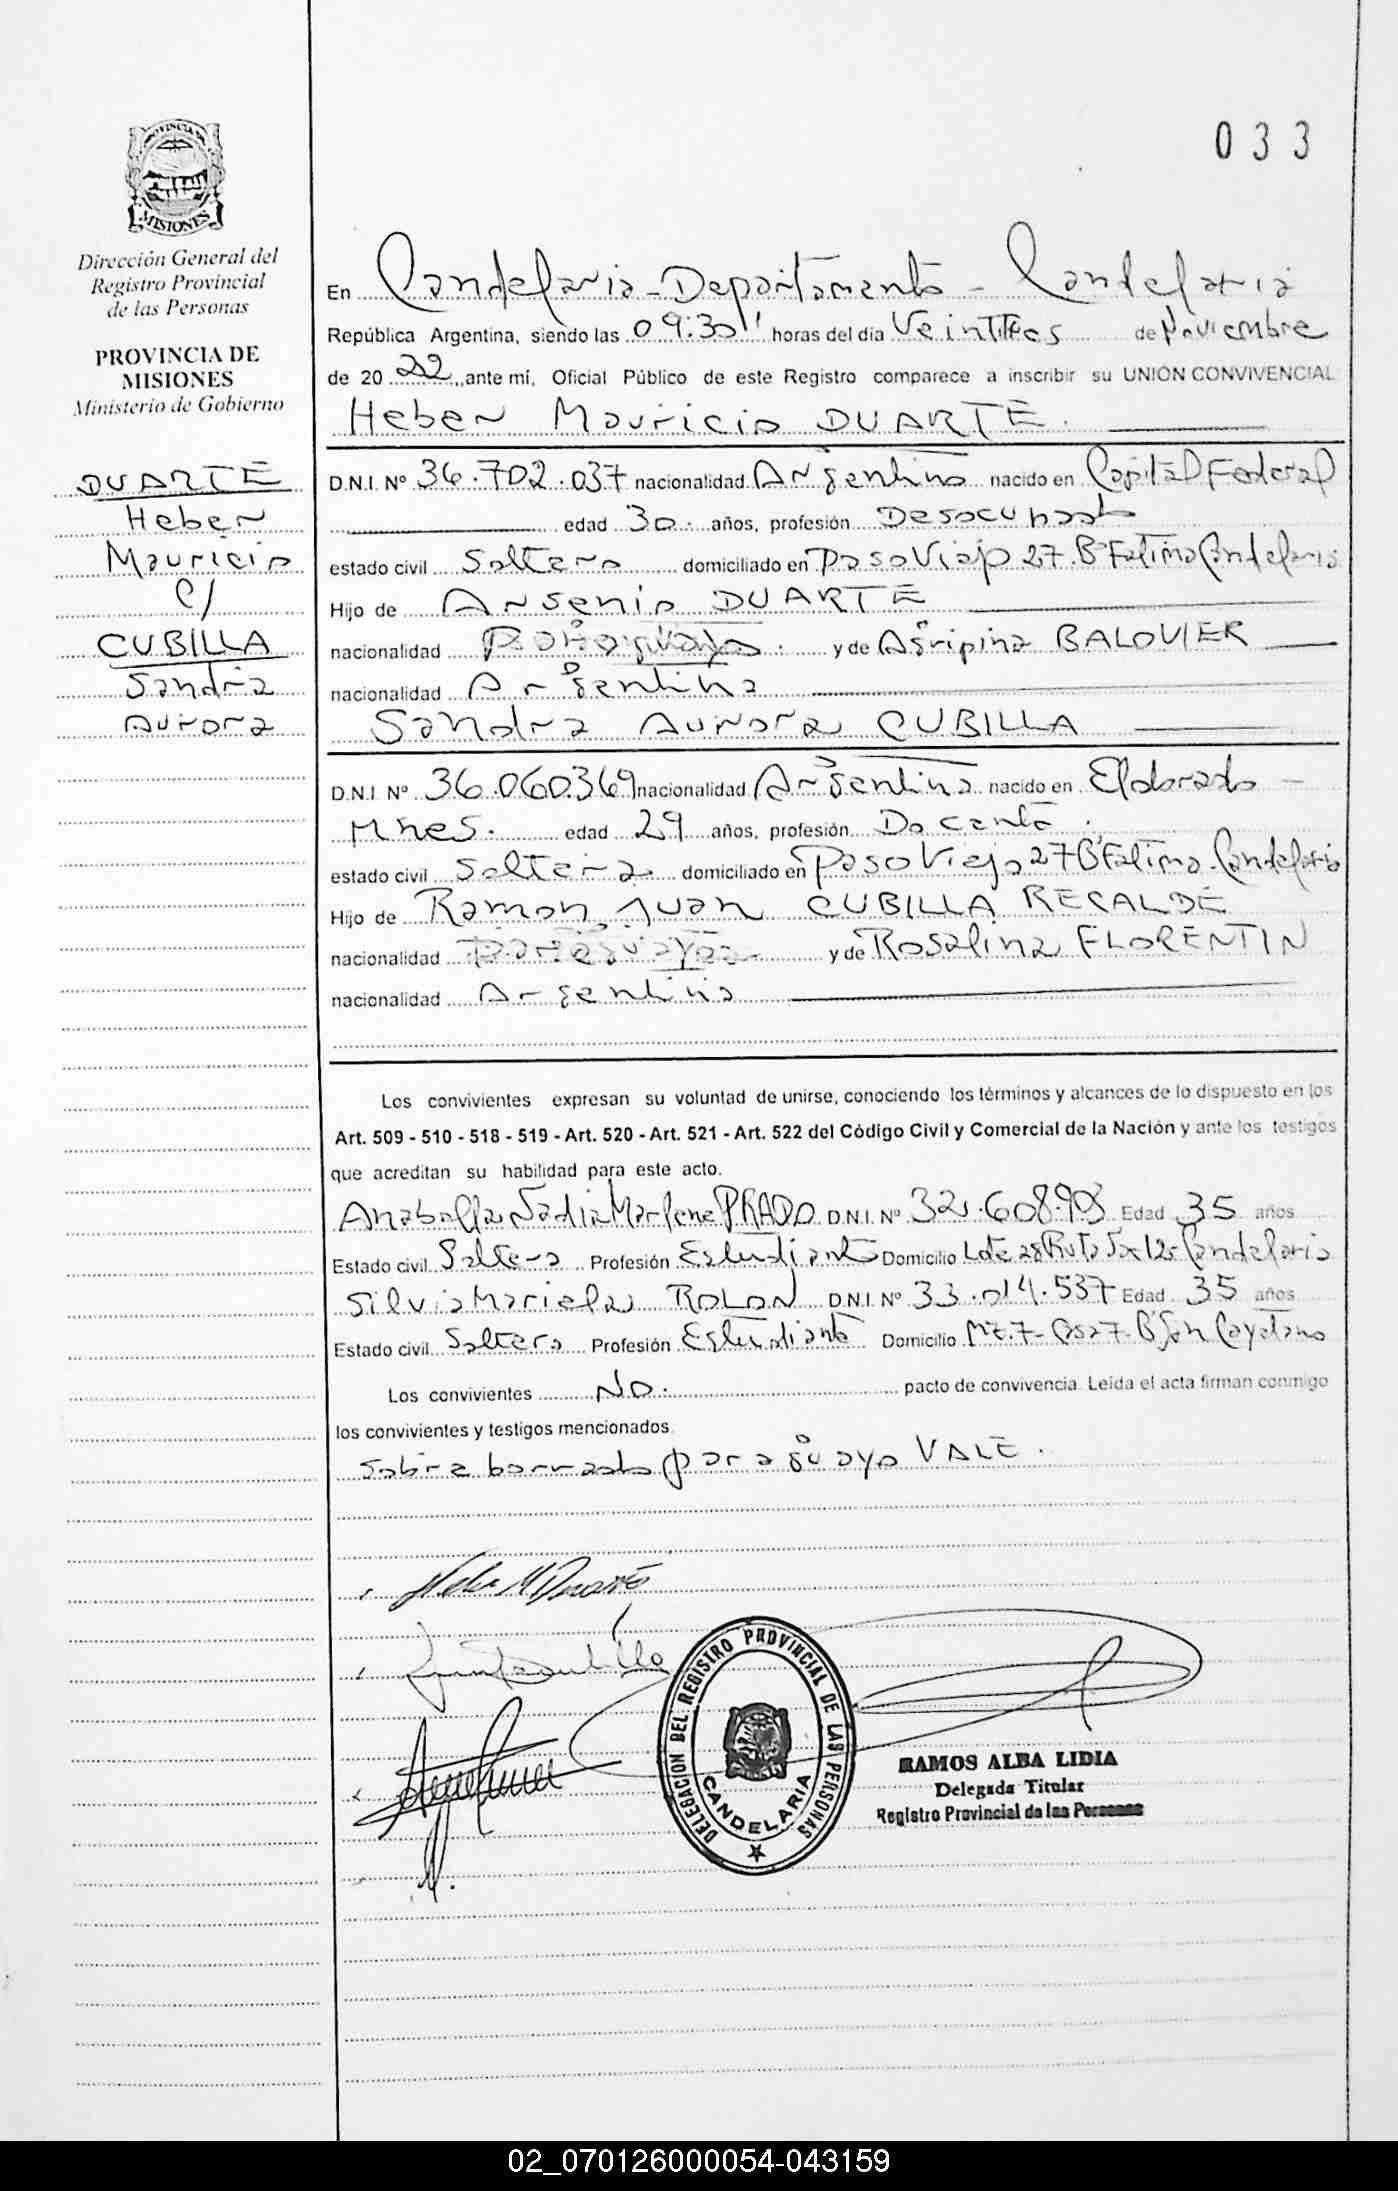 033
PROVINCIA DE
MISIONES
Dirección General del
Registro Provincial
de las Personas
PROVINCIA DE
MISIONES
Ministerio de Gobierno
DUARTE
Heber
Mauricio
C/
CUBILLA
Sandra
Aurora
En Candelaria - Departamento - Candelaria
República Argentina, siendo las 09:30 horas del día Veintitres de Noviembre
de 20 22, ante mí, Oficial Público de este Registro comparece a inscribir su UNION CONVIVENCIAL
Heber Mauricio DUARTE.
D.N.I. Nº 36.702.037 nacionalidad Argentino nacido en Capital Federal
edad 30. años, profesión Desocupado
estado civil Soltero domiciliado en Paso Viejo 27. Bº Fatima Candelaria
Hijo de Arsenio DUARTE
nacionalidad Paraguayo. y de Agripina BALOVIER
nacionalidad Argentina
Sandra Aurora CUBILLA
D.N.I. Nº 36.060.369 nacionalidad Argentina nacido en Eldorado -
Mnes. edad 29 años, profesión Docente.
estado civil Soltera domiciliado en Paso Viejo 27 Bº Fatima. Candelaria
Hijo de Ramon Juan CUBILLA RECALDE
nacionalidad Paraguayo y de Rosalina FLORENTIN
nacionalidad Argentina
Los convivientes expresan su voluntad de unirse, conociendo los términos y alcances de lo dispuesto en los
Art. 509 - 510 - 518 - 519 - Art. 520 - Art. 521 - Art. 522 del Código Civil y Comercial de la Nación y ante los testigos
que acreditan su habilidad para este acto.
Anabella Nadia Marlene PRADO D.N.I. Nº 32.608.903 Edad 35 años
Estado civil Soltera Profesión Estudiante Domicilio Lote 28 Ruta Candelaria
Silvia Mariela ROLON D.N.I. Nº 33.014.537 Edad 35 años
Estado civil Soltera Profesión Estudiante Domicilio Mz. 7 - Casa 7 - Bº San Cayetano
Los convivientes No. pacto de convivencia. Leída el acta firman conmigo
los convivientes y testigos mencionados.
Sobre borrado paraguayo VALE.
Heber M Duarte
DELEGACION DEL REGISTRO PROVINCIAL DE LAS PERSONAS
CANDELARIA
RAMOS ALBA LIDIA
Delegada Titular
Registro Provincial de las Personas
02_070126000054-043159